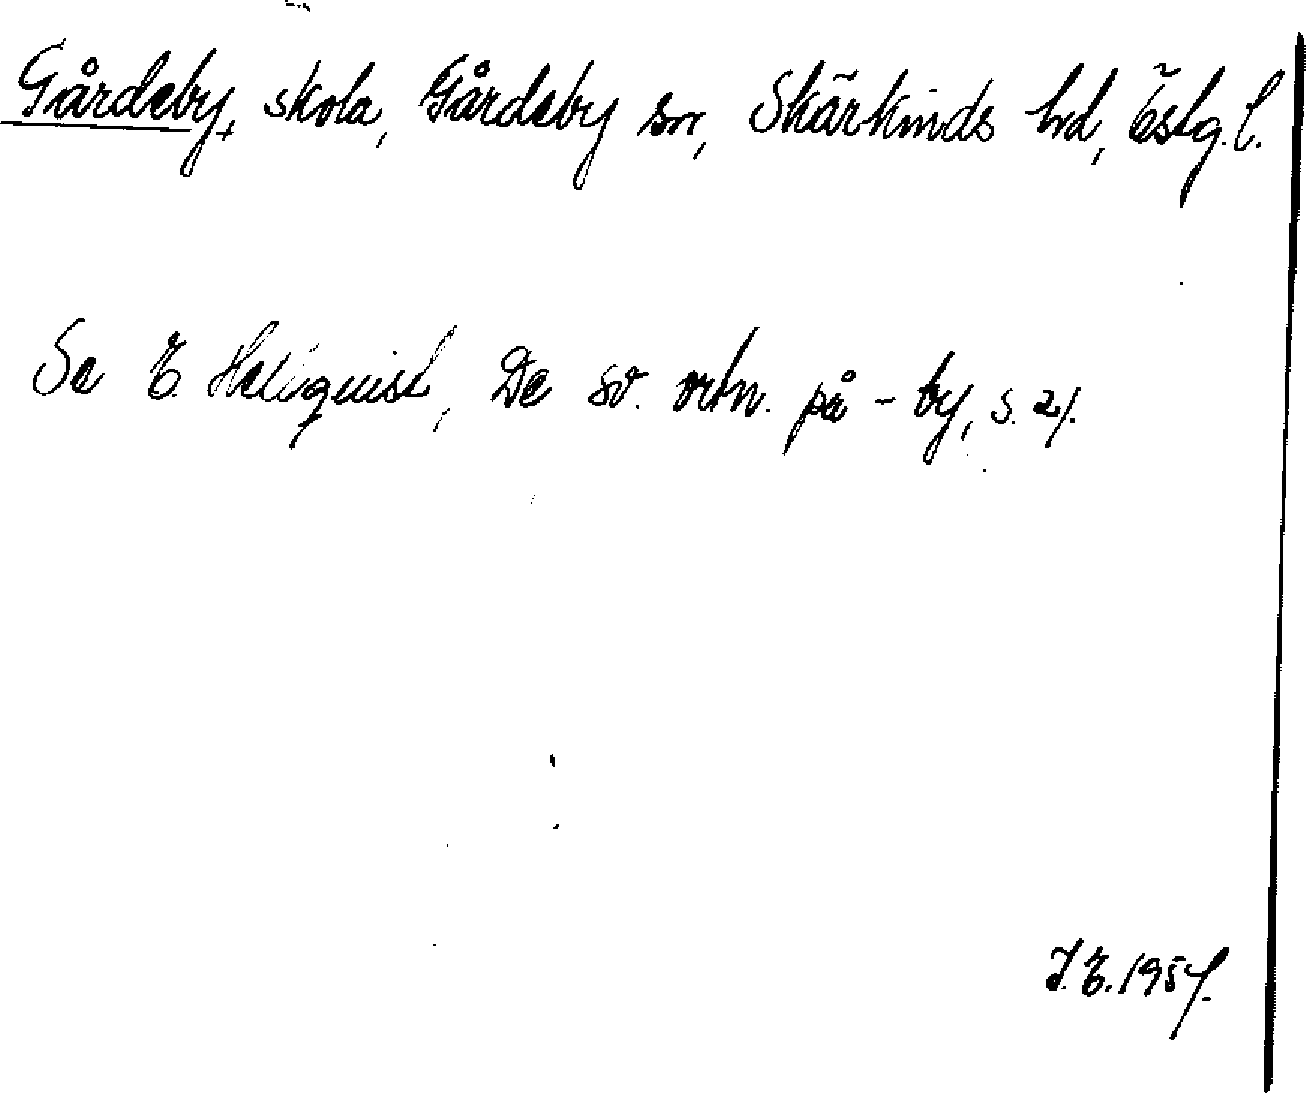 Gårdeby, skola, Gårdeby sn, Skärkinds hd, Östg. l.
Se E. Hellquist, De sv. ortn. på -by, s. 21.
J. E. 1957.